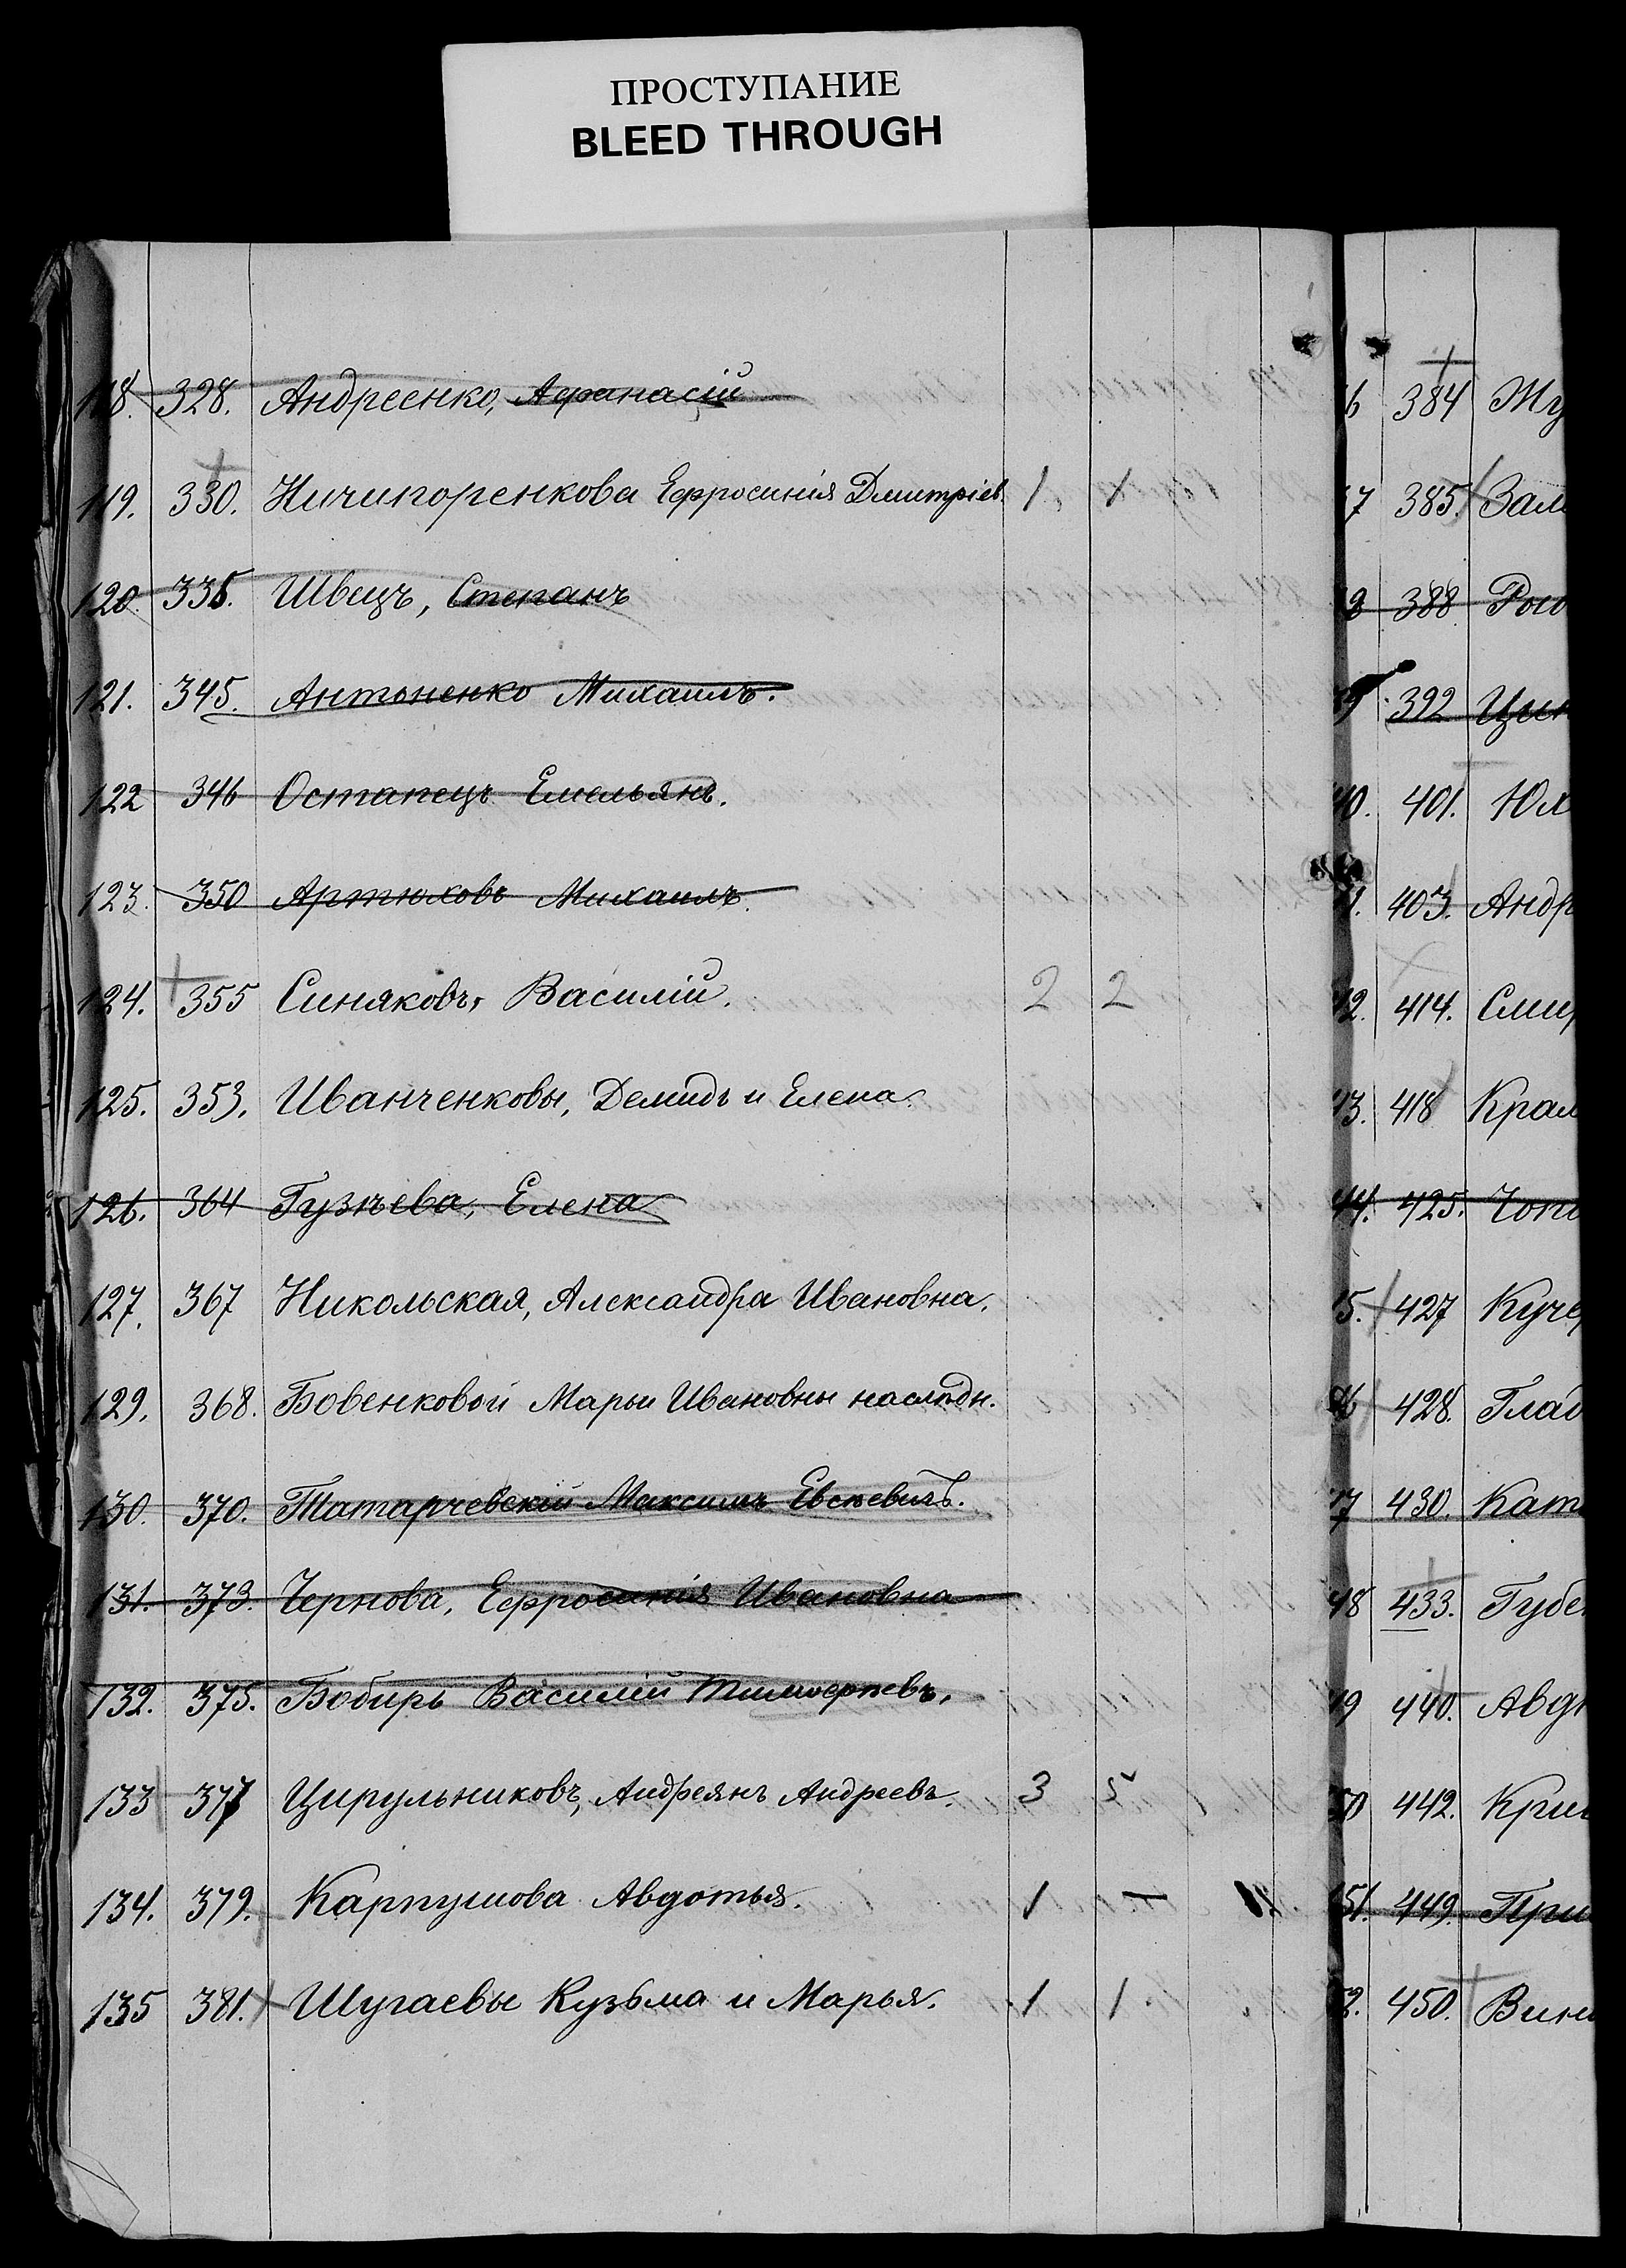 ПРОСТУПАНИЕ
BLEED THROUGH
118. 328. Андреенко, Афанасій
119. 330. Ничипоренкова Ефросинія Дмитріев. 1 1
120. 335. Швецъ, Степанъ
121. 345. Антоненко Михаилъ.
122 346 Остапецъ Емельянъ.
123. 350 Артюховъ Михаилъ.
124. 355 Синяковъ, Василій. 2 2
125. 353. Иванченковы, Демидъ и Елена.
126. 364 Гузѣева, Елена
127. 367 Никольская, Александра Ивановна.
129. 368. Бовенковой Марьи Ивановны наслѣдн.
130. 370. Татарчевскій Максимъ Евсѣевичъ.
131. 373. Чернова, Ефросинія Ивановна
132. 375. Бобирь Василій Тимоѳеѣевъ.
133 377 Цирульниковъ, Андреянъ Андреевъ. 3 5
134. 379. Карпушова Авдотья. 1 —
135 381. Шугаевы Кузьма и Марья. 1 1
6 384 Жу
7 385. Зам
388 Рого
392 Цин
40. 401. Юх
1. 403. Андр
42. 414. Смир
43. 418 Крам
44. 425. Чоп
5. 427 Кучер
6 428. Глад
7 430. Кат
48 433. Губе
49 440. Авд
50 442. Кри
51. 449. При
2. 450. Вин